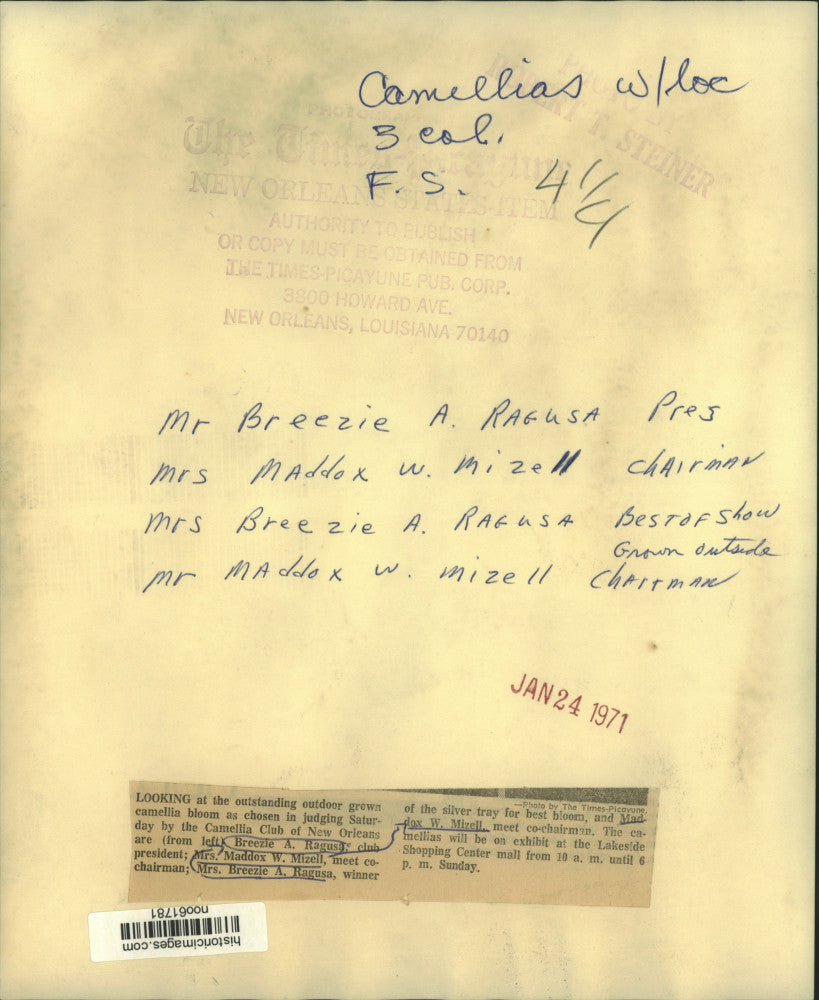 Camellias w/loc
3 col.
F. S. 4 1/4
PHOTO BY
ROBERT T. STEINER
The Times-Picayune
NEW ORLEANS STATES-ITEM
AUTHORITY TO PUBLISH
OR COPY MUST BE OBTAINED FROM
THE TIMES-PICAYUNE PUB. CORP.
3800 HOWARD AVE.
NEW ORLEANS, LOUISIANA 70140
Mr Breezie A. RAGUSA Pres
Mrs MAddox W. Mizell CHAIRMAN
Mrs Breezie A. RAGUSA BEST OF Show
Grown outside
Mr MAddox W. Mizell CHAIRMAN
JAN 24 1971
LOOKING at the outstanding outdoor grown
camellia bloom as chosen in judging Satur-
day by the Camellia Club of New Orleans
are (from left) Breezie A. Ragusa, club
president; Mrs. Maddox W. Mizell, meet co-
chairman; Mrs. Breezie A. Ragusa, winner
—Photo by The Times-Picayune.
of the silver tray for best bloom, and Mad-
dox W. Mizell, meet co-chairman. The ca-
mellias will be on exhibit at the Lakeside
Shopping Center mall from 10 a. m. until 6
p. m. Sunday.
historicimages.com
noo61781